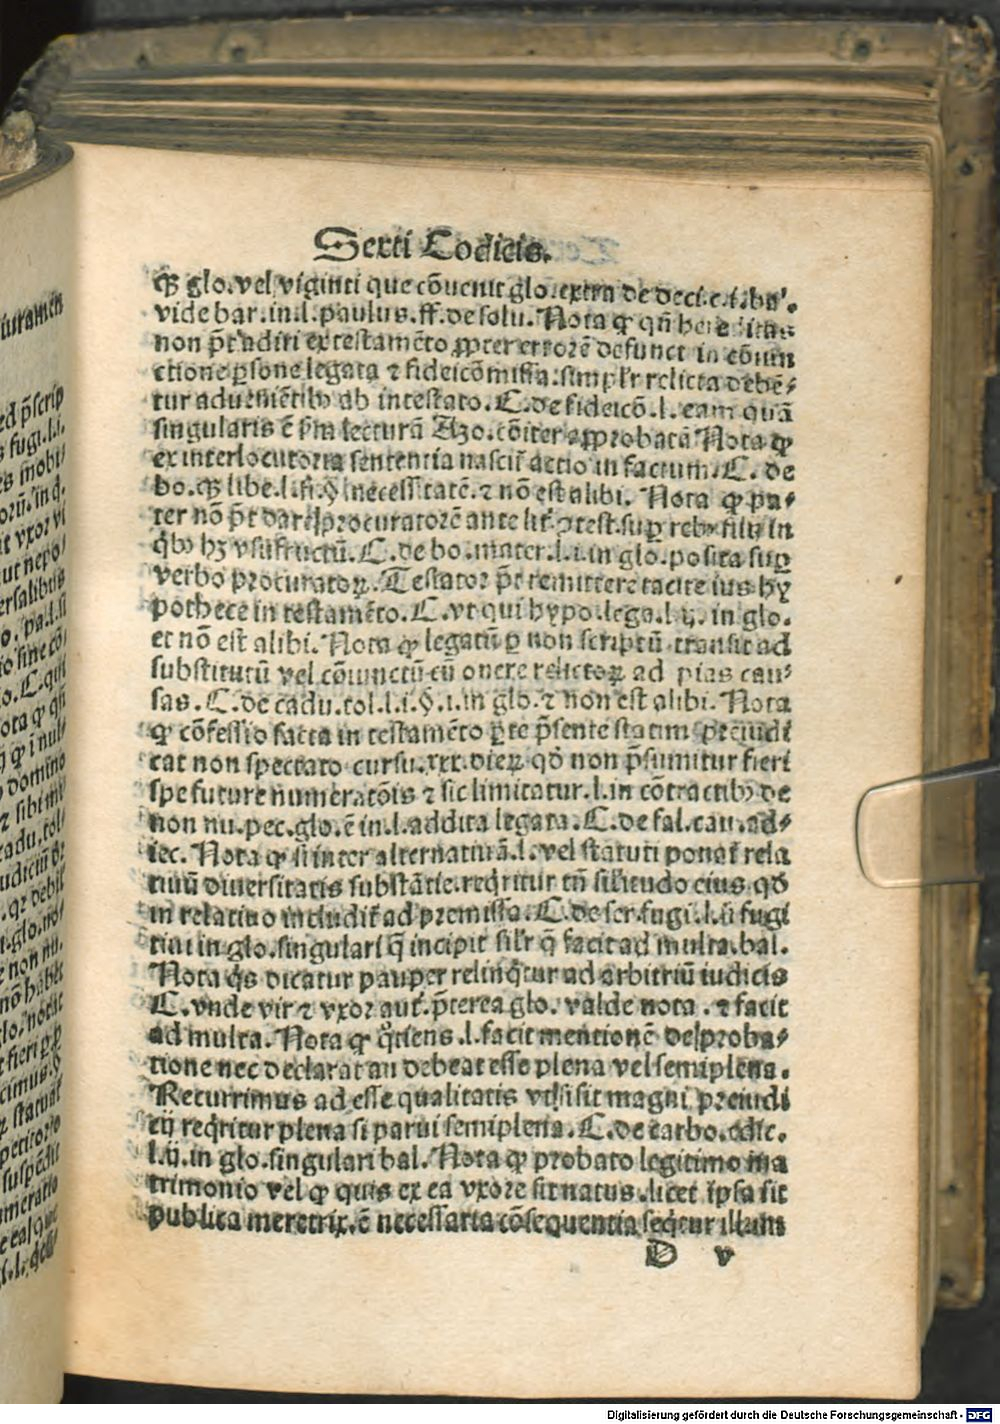 Sexti Codicis.
qꝫ glo. vel viginti que cōuenit glo. extra de deci. c. i. bn'.
vide bar. in. l. paulus. ff. de solu. Nota ꝙ qñ
non p̄t adiri ex testamēto ꝓpter errorē defuncti in cōiun
ctione ꝑsone legata ⁊ fideicōmissa: simplr̄ relicta debē⸗
tur adueniētibꝰ ab intestato. C. de fideicō. l. eam quā
singularis ē ꝑm lecturā Azo. cōiter approbatā Nota ꝙ
ex interlocutoria sententia nascit̄ actio in factum. C. de
bo. qꝫ libe. l. fi. §. necessitatē. ⁊ nō est alibi. Nota ꝙ pa⸗
ter nō p̄t dare procuratorē ante lit̄. ꝯtest. suꝑ rebꝰ filij in
qͥbꝰ hꝫ vsufructū. C. de bo. mater. l. i. in glo. posita suꝑ
verbo procuratoꝝ. Testator p̄t remittere tacite ius hy
pothece in testamēto. C. vt qui hypo. lega. l. ij. in glo.
et nō est alibi. Nota ꝙ legatū ꝑ non scriptū transit ad
substitutū vel cōiunctū cū onere relictoꝝ ad pias cau⸗
sas. C. de cadu. tol. l. i. §. i. in glo. ⁊ non est alibi. Nota
ꝙ cōfessio facta in testamēto ꝑte p̄sente statim preiudi
cat non spectato cursu. xxx. dieꝝ qd̄ non p̄sumitur fieri
spe future numeratōis ⁊ sic limitatur. l. in cōtractibꝰ de
non nu. pec. glo. ē in. l. addita legata. C. de fal. cau. ad⸗
iec. Nota ꝙ si inter alternatiuā. l. vel statuti ponat̄ rela
tiuū diuersitatis substātie. reqͥritur tñ sil'itudo eius qd̄
in relatiuo includit̄ ad premissa. C. de ser. fugi. l. ii fugi
tiui in glo. singulari q̄ incipit sil'r q̄ facit ad multa. bal.
Nota qͥs dicatur pauper relinqͥtur ad arbitriū iudicis
C. vnde vir ⁊ vxor aut̄. p̄terea glo. valde nota. ⁊ facit
ad multa. Nota ꝙ qͦtiens. l. facit mentionē de proba⸗
tione nec declarat an debeat esse plena vel semiplena.
Recurrimus ad esse qualitatis vt si sit magni preiudi
cij reqͥritur plena si parui semiplena. C. de carbo. edic.
l. ij. in glo. singulari bal. Nota ꝙ probato legitimo ma
trimonio vel ꝙ quis ex ea vxore sit natus. licet ipsa sit
publica meretrix. ē necessaria cōsequentia seqͥtur illum
D v
Digitalisierung gefördert durch die Deutsche Forschungsgemeinschaft - DFG